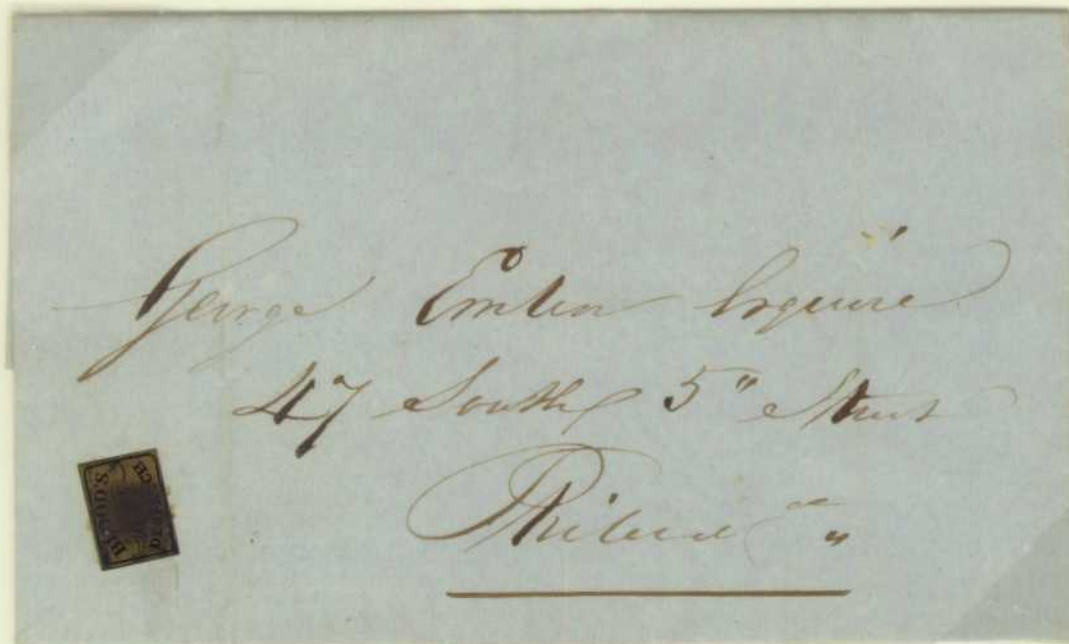 George Emlen Esquire
47 South 5" Street
Philad a "